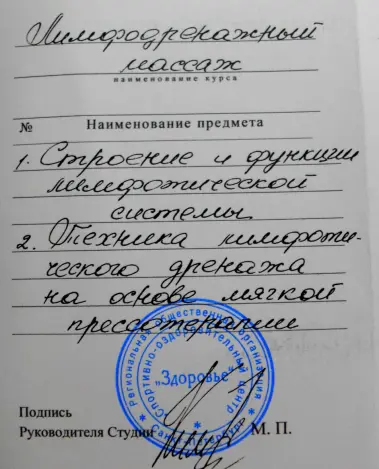 Лимфодренажный
массаж
наименование курса
№ Наименование предмета
1. Строение и функции
лимфотической
системы.
2. Техника лимфоти-
ческого дренажа
на основе мягкой
прессотерапии
Региональная общественная организация
Спортивно-оздоровительный центр
"Здоровье"
Санкт-Петербург
Подпись
Руководителя Студии
М. П.